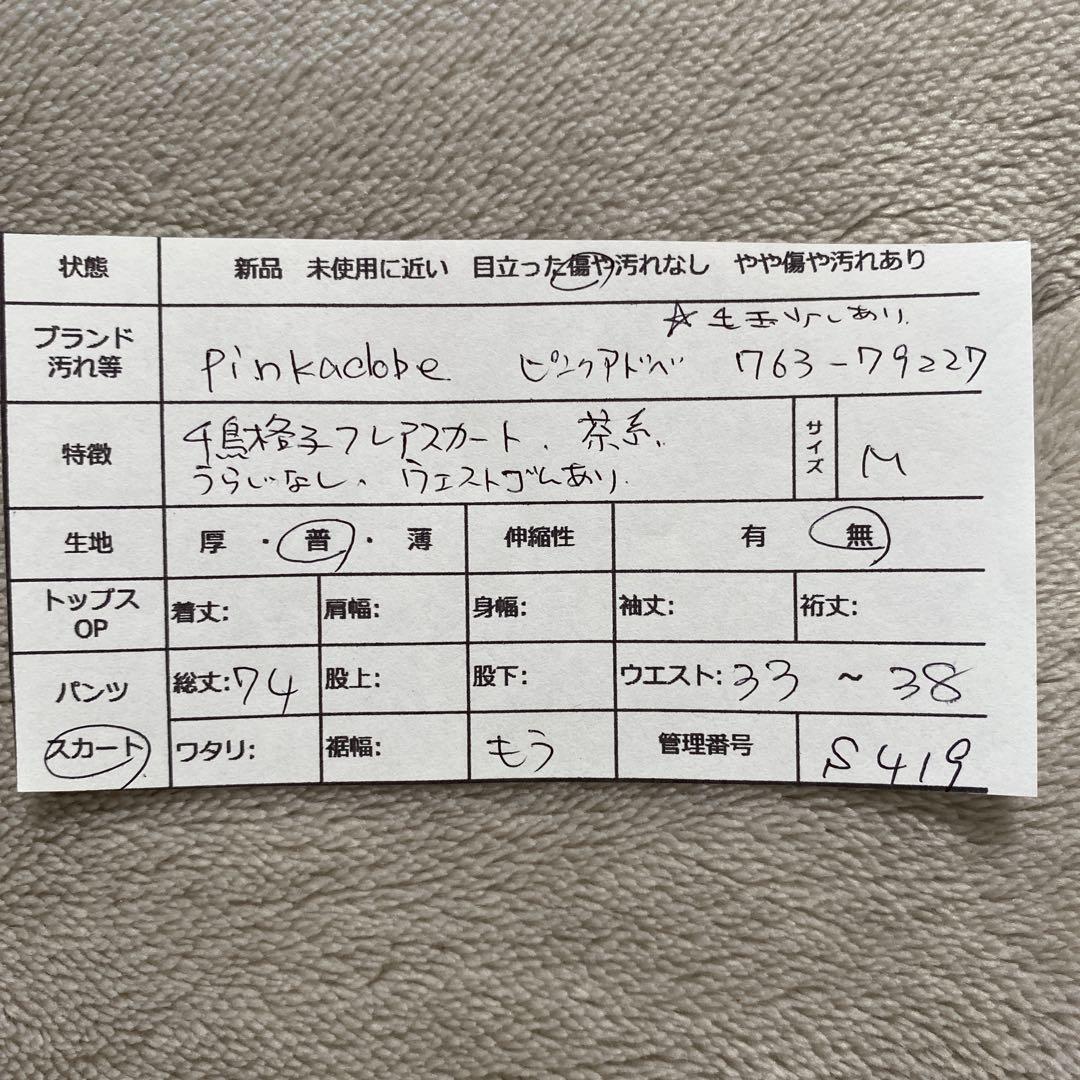 状態 新品 未使用に近い 目立った傷や汚れなし やや傷や汚れあり
ブランド
汚れ等
☆ あり.
pinkadobe ピンクアドベ 763-79227
特徴
千鳥格子フレアスカート、茶系、
うらじなし、ウエストゴムあり.
サイズ M
生地 厚・普・薄 伸縮性 有 無
トップス
OP
着丈: 肩幅: 身幅: 袖丈: 裄丈:
パンツ 総丈:74 股上: 股下: ウエスト:33 ~ 38
スカート ワタリ: 裾幅: もう 管理番号 S419